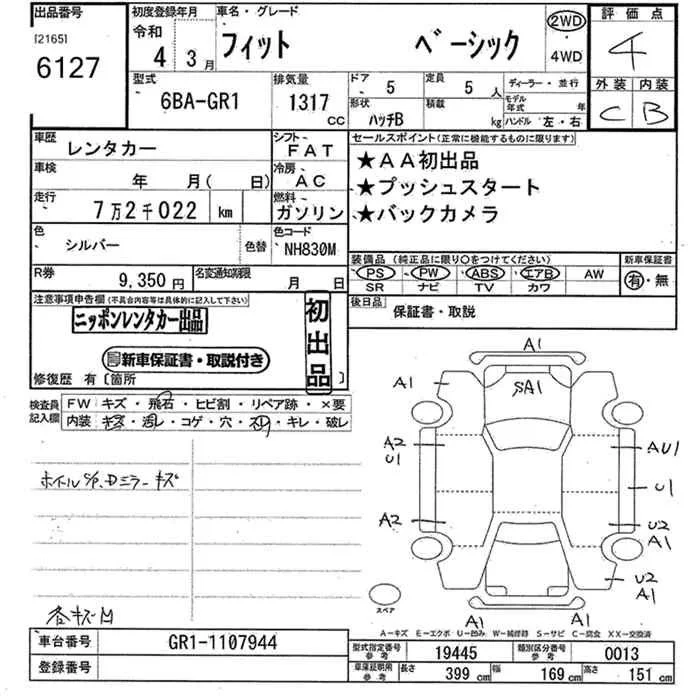 出品番号
[2165]
6127
初度登録年月
令和
4 3月
車名・グレード
フィット ベーシック
2WD
・
4WD
評価点
4
外装 内装
C B
型式
6BA-GR1
排気量
1317 CC
ドア
5
定員
5 人
形状
ハッチB
積載
kg
ディーラー・並行
モデル年式 年
ハンドル 左・右
車歴
レンタカー
シフト
FAT
車検
年 月( 日)
冷房
AC
走行
7万2千022 km
燃料
ガソリン
色
シルバー
色替
色コード
NH830M
R券
9,350円
名変通知期限
月 日
セールスポイント(正常に機能するものに限ります)
★AA初出品
★プッシュスタート
★バックカメラ
装備品(純正品に限り○をつけてください)
PS PW ABS エアB AW
SR ナビ TV カワ
新車保証書
有・無
後日品
保証書・取説
注意事項申告欄(不具合内容等は具体的に記入して下さい)
ニッポンレンタカー出品
新車保証書・取説付き
初出品
修復歴 有〔箇所 〕
検査員記入欄
FW キズ・飛石・ヒビ割・リペア跡・×要
内装 キズ・汚レ・コゲ・穴・スレ・キレ・破レ
ホイールS/P、Dミラーキズ
A1
A1
SA1
A2
U1
AU1
U1
A2
U2
A1
U2
A1
A1
A1
スペア
A-キズ E-エクボ U-凹み W-補修跡 S-サビ C-腐食 XX-交換済
車台番号
GR1-1107944
登録番号
型式指定番号
参考
19445
類別区分番号
参考
0013
車庫証明用
参考
長さ
399 cm
幅
169 cm
高さ
151 cm